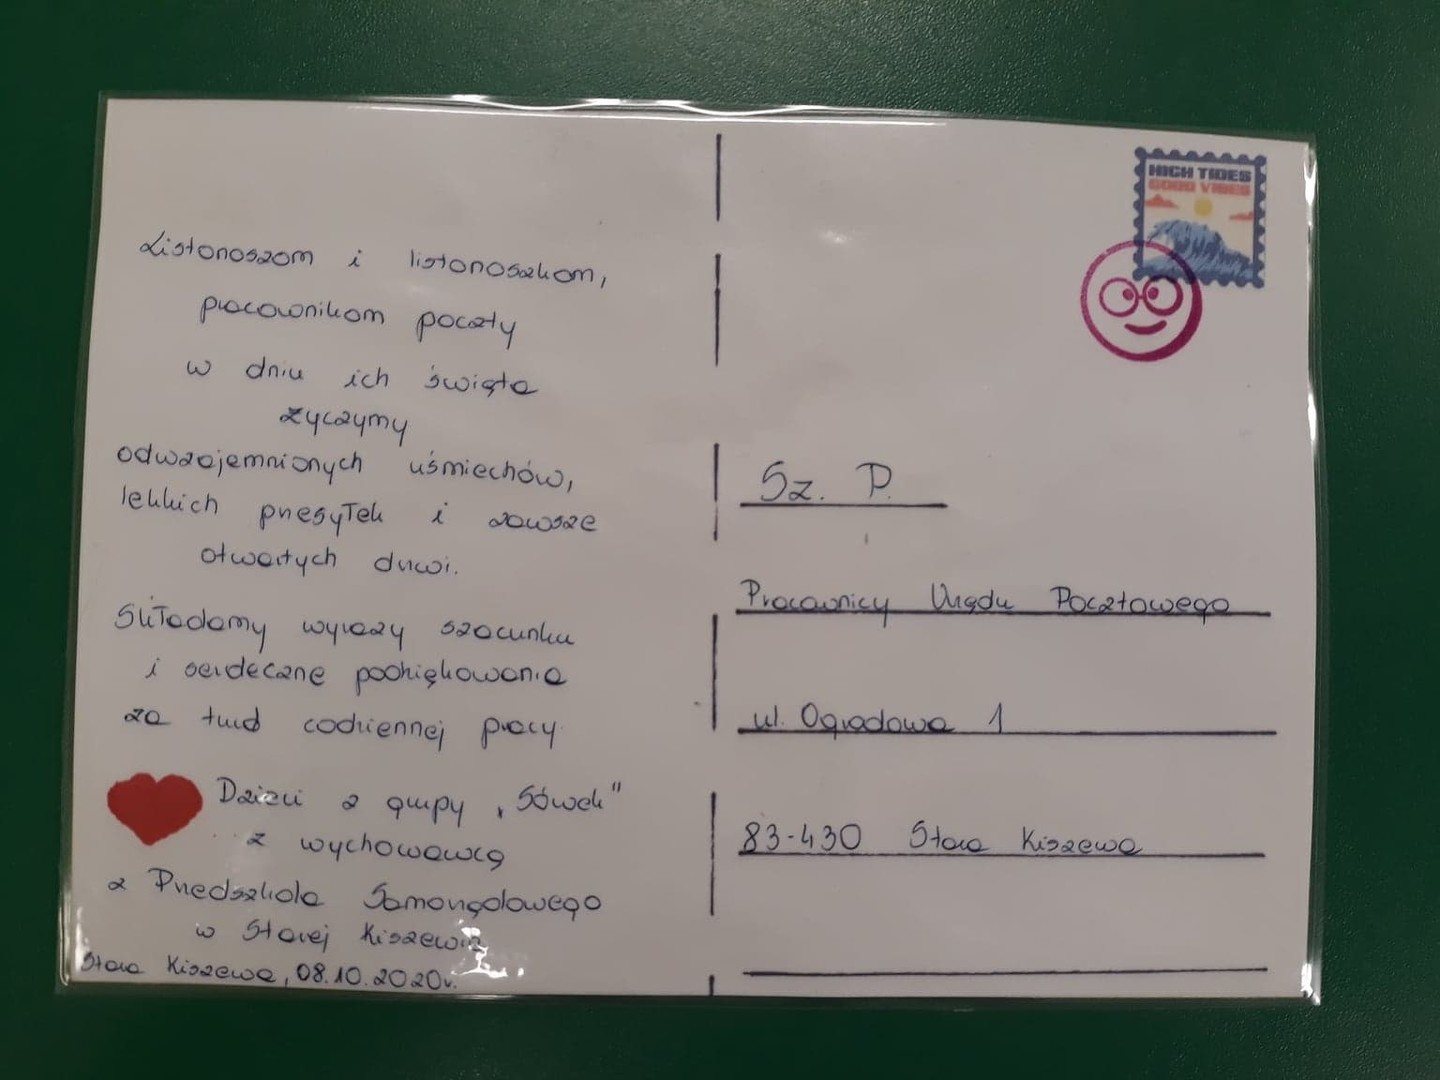 Listonoszom i listonoszkom,
pracownikom poczty
w dniu ich święta
życzymy
odwzajemnionych uśmiechów,
lekkich przesyłek i zawsze
otwartych drzwi.
Składamy wyrazy szacunku
i serdeczne podziękowania
za trud codziennej pracy
Dzieci z grupy "Sówek"
z wychowawcą
z Przedszkola Samorządowego
w Starej Kiszewie
Stara Kiszewa, 08.10.2020r.
HIGH TIDES
GOOD VIBES
Sz. P.
Pracownicy Urzędu Pocztowego
ul. Ogrodowa 1
83-430 Stara Kiszewa